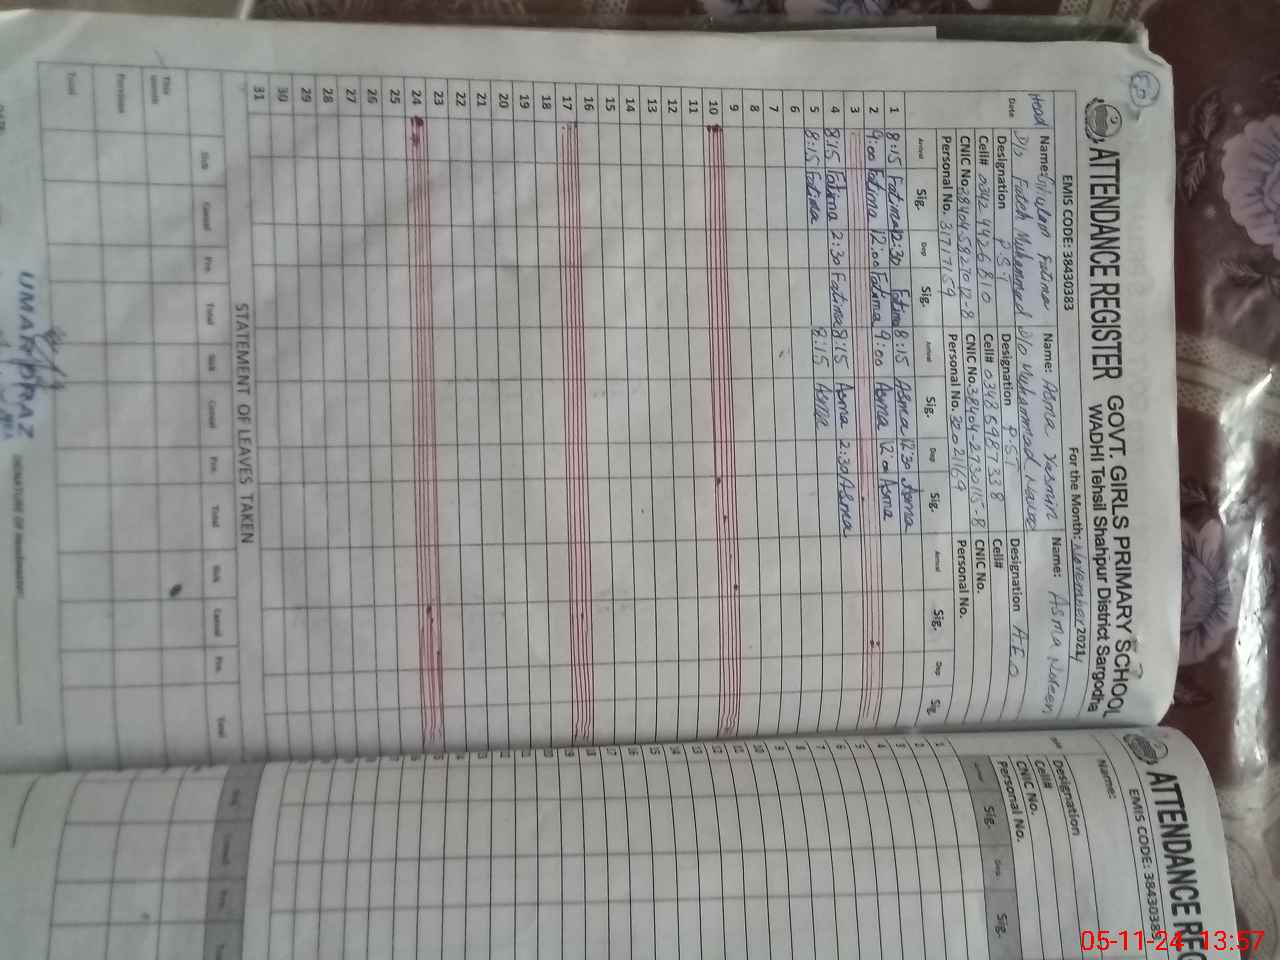 ATTENDANCE REGISTER GOVT. GIRLS PRIMARY SCHOOL
WADHI Tehsil Shahpur District Sargodha
EMIS CODE: 38430383 For the Month: November 2024
Head Name: Ghulam Fatima Name: Asma Yasmin Name: Asma Noreen
D/o Fateh Muhammad D/o Muhammad
Date Designation PST Designation P.ST Designation AEO
Cell# 0342 9926810 Cell# 03486987338 Cell#
CNIC No. CNIC No. CNIC No.
Personal No. 31717169 Personal No. Personal No.
Arrival Sig. Dep Sig. Arrival Sig. Dep Sig. Arrival Sig. Dep Sig.
1 8:15 Fatima 12:30 Fatima 8:15 Asma 12:30 Asma
2 9:00 Fatima 12:00 Fatima 9:00 Asma 12:00 Asma
3
4 8:15 Fatima 2:30 Fatima 8:15 Asma 2:30 Asma
5 8:15 Fatima 8:15 Asma
6
7
8
9
10
11
12
13
14
15
16
17
18
19
20
21
22
23
24
25
26
27
28
29
30
31
STATEMENT OF LEAVES TAKEN
Sick Casual Pre. Total Sick Casual Pre. Total Sick Casual Pre. Total
This month
Previous
Total
UMAR DRAZ
SIGNATURE OF Headmaster
ATTENDANCE REG
EMIS CODE: 38430383
Name:
Designation
Cell#
CNIC No.
Personal No.
Sig. Dep. Sig.
1
2
3
4
5
6
7
8
9
10
11
12
13
14
15
16
17
18
19
20
21
22
05-11-24 13:57